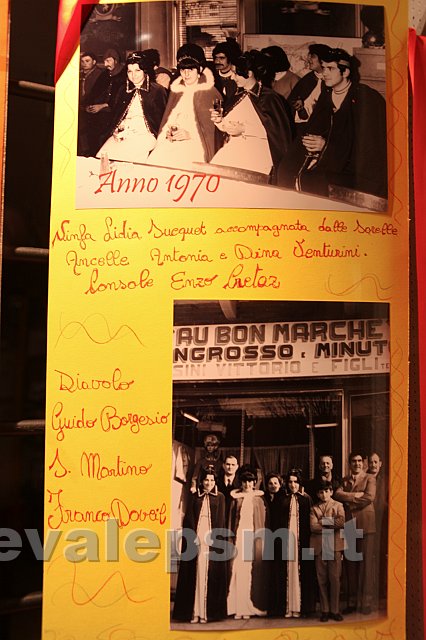 Anno 1970
Ninfa Lidia Sucquet accompagnata dalle Sorelle
Ancelle Antonia e Dina Venturini.
Console Enzo Cretaz
AU BON MARCHE
INGROSSO E MINUT
CINI VITTORIO E FIGLI
Diavolo
Guido Borgesio
S. Martino
Franco Doveil
evalepsm.it